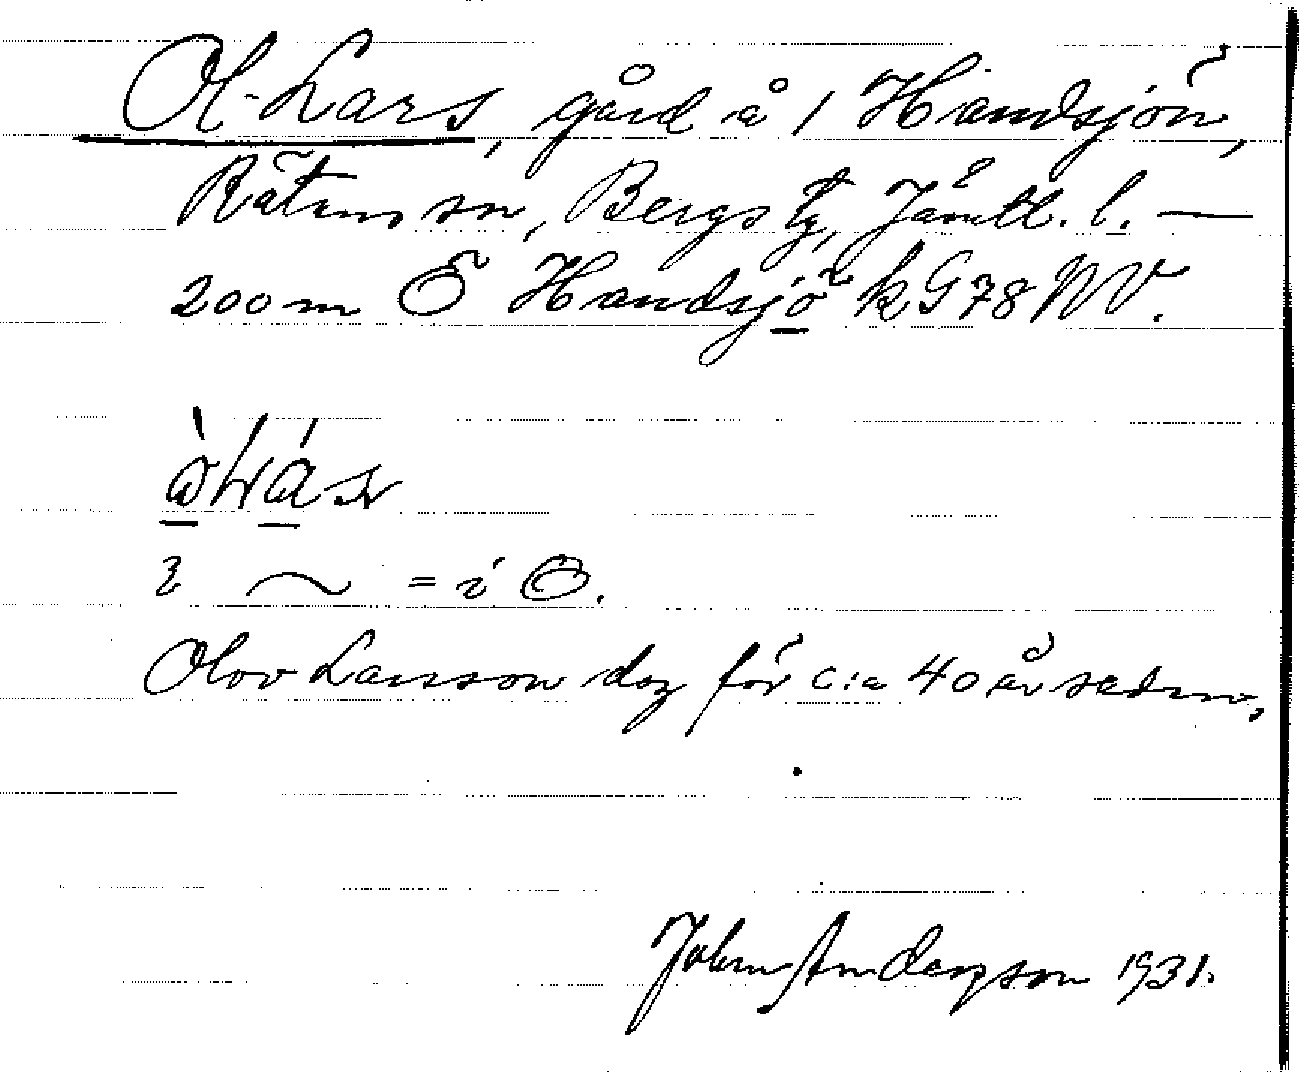 Ol-Lars, gård å 1 Handsjön,
Rätans sn, Bergs tg, Jämtl. l. —
200 m Ö Handsjö k G78 NV.
= i Ö.
Olov Larsson dog för c:a 40 år sedan,
John Anderzson 1931.